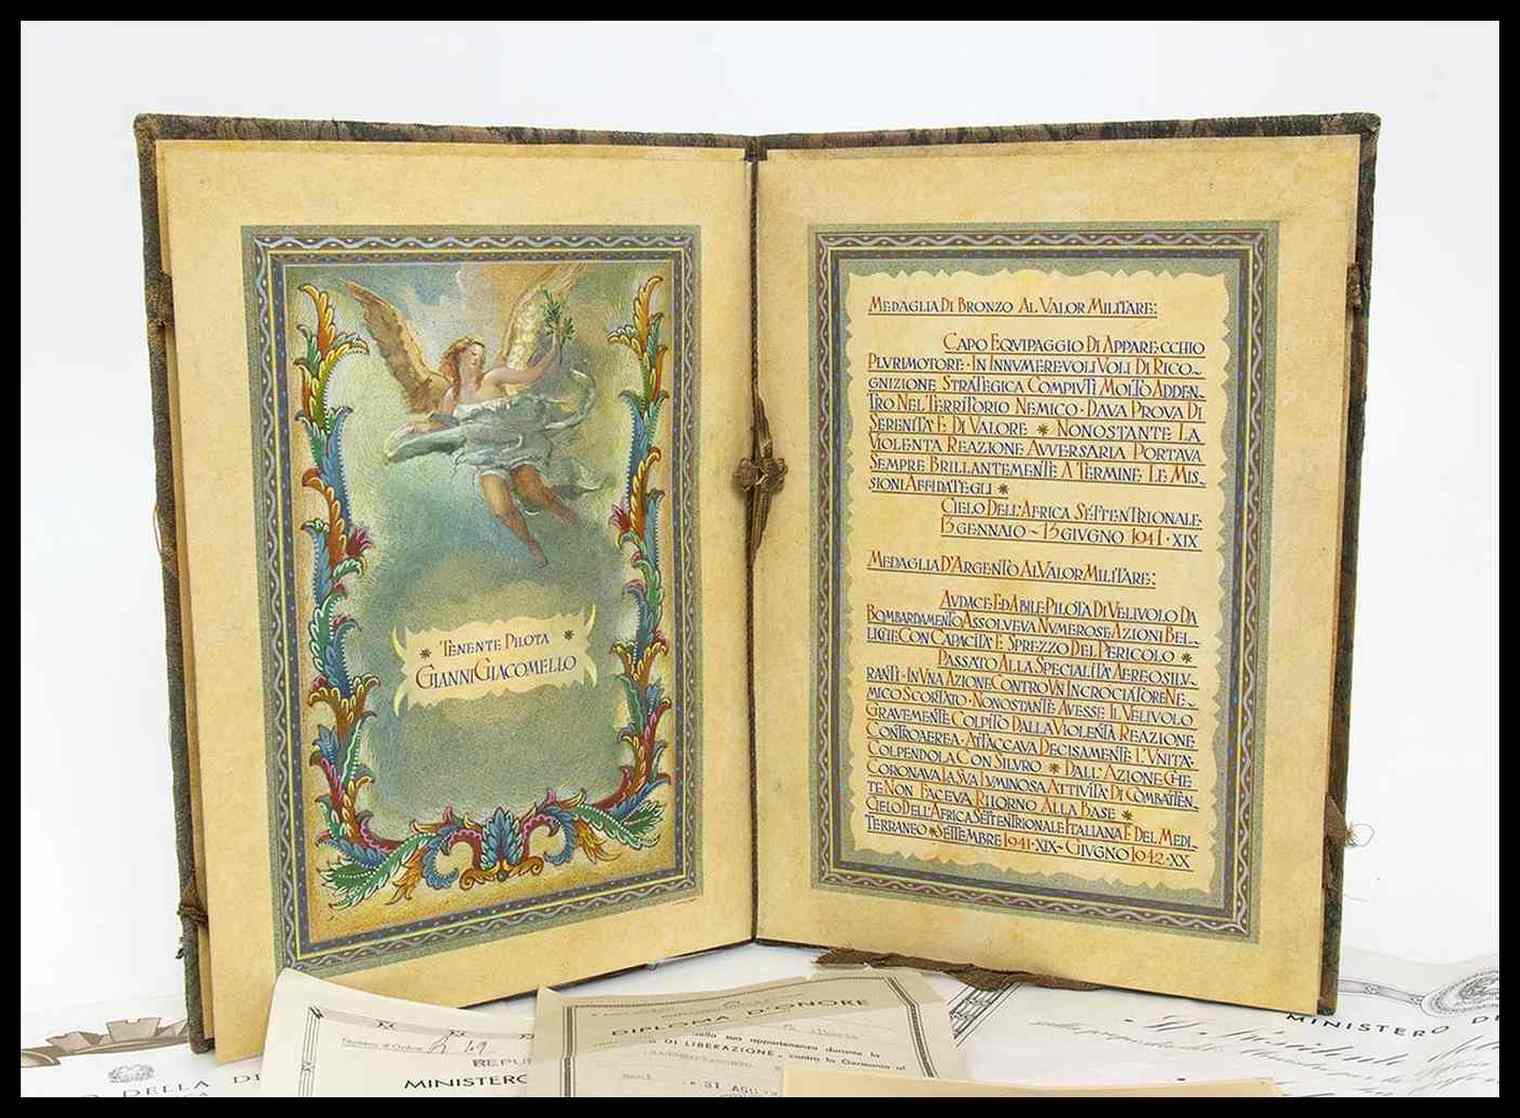 TENENTE PILOTA
GIANNI GIACOMELLO
MEDAGLIA DI BRONZO AL VALOR MILITARE:
CAPO EQVIPAGGIO DI APPARECCHIO
PLVRIMOTORE · IN INNVMEREVOLI VOLI DI RICO-
GNIZIONE STRATEGICA COMPIVTI MOLTO ADDEN-
TRO NEL TERRITORIO NEMICO · DAVA PROVA DI
SERENITA' E DI VALORE * NONOSTANTE LA
VIOLENTA REAZIONE AVVERSARIA PORTAVA
SEMPRE BRILLANTEMENTE A TERMINE LE MIS-
SIONI AFFIDATEGLI *
CIELO DELL'AFRICA SETTENTRIONALE
13 GENNAIO - 13 GIVGNO 1941 · XIX
MEDAGLIA D'ARGENTO AL VALOR MILITARE:
AVDACE ED ABILE PILOTA DI VELIVOLO DA
BOMBARDAMENTO ASSOLVEVA NVMEROSE AZIONI BEL-
LICHE CON CAPACITA' E SPREZZO DEL PERICOLO *
PASSATO ALLA SPECIALITA' AEREOSILV-
RANTI · IN VNA AZIONE CONTRO VN INCROCIATORE NE-
MICO SCORTATO · NONOSTANTE AVESSE IL VELIVOLO
GRAVEMENTE COLPITO DALLA VIOLENTA REAZIONE
CONTROAEREA · ATTACCAVA DECISAMENTE L'VNITA'
COLPENDOLA CON SILVRO * DALL'AZIONE CHE
CORONAVA LA SVA LVMINOSA ATTIVITA' DI COMBATTEN-
TE NON FACEVA RITORNO ALLA BASE *
CIELO DELL'AFRICA SETTENTRIONALE ITALIANA E DEL MEDI-
TERRANEO * SETTEMBRE 1941 · XIX - GIVGNO 1942 · XX
DELLA DI
Numero d'Ordine
REPU
MINISTERO
DIPLOMA D'ONORE
sua appartenenza durante la
DI LIBERAZIONE contro la Germania
31 AGO
MINISTERO D